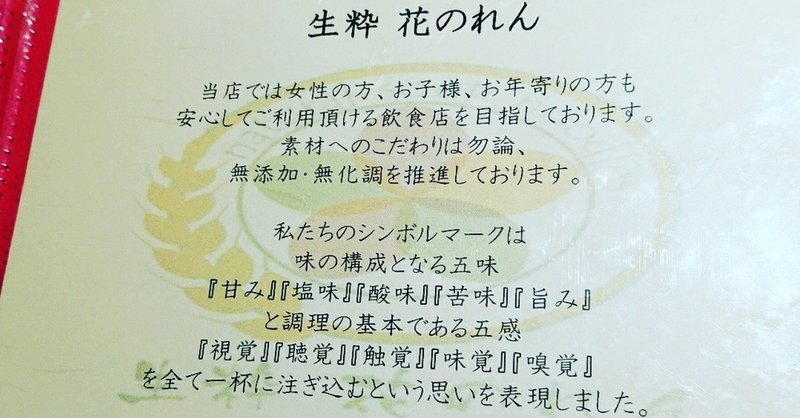 生粋 花のれん
当店では女性の方、お子様、お年寄りの方も
安心してご利用頂ける飲食店を目指しております。
素材へのこだわりは勿論、
無添加・無化調を推進しております。
私たちのシンボルマークは
味の構成となる五味
『甘み』『塩味』『酸味』『苦味』『旨み』
と調理の基本である五感
『視覚』『聴覚』『触覚』『味覚』『嗅覚』
を全て一杯に注ぎ込むという思いを表現しました。